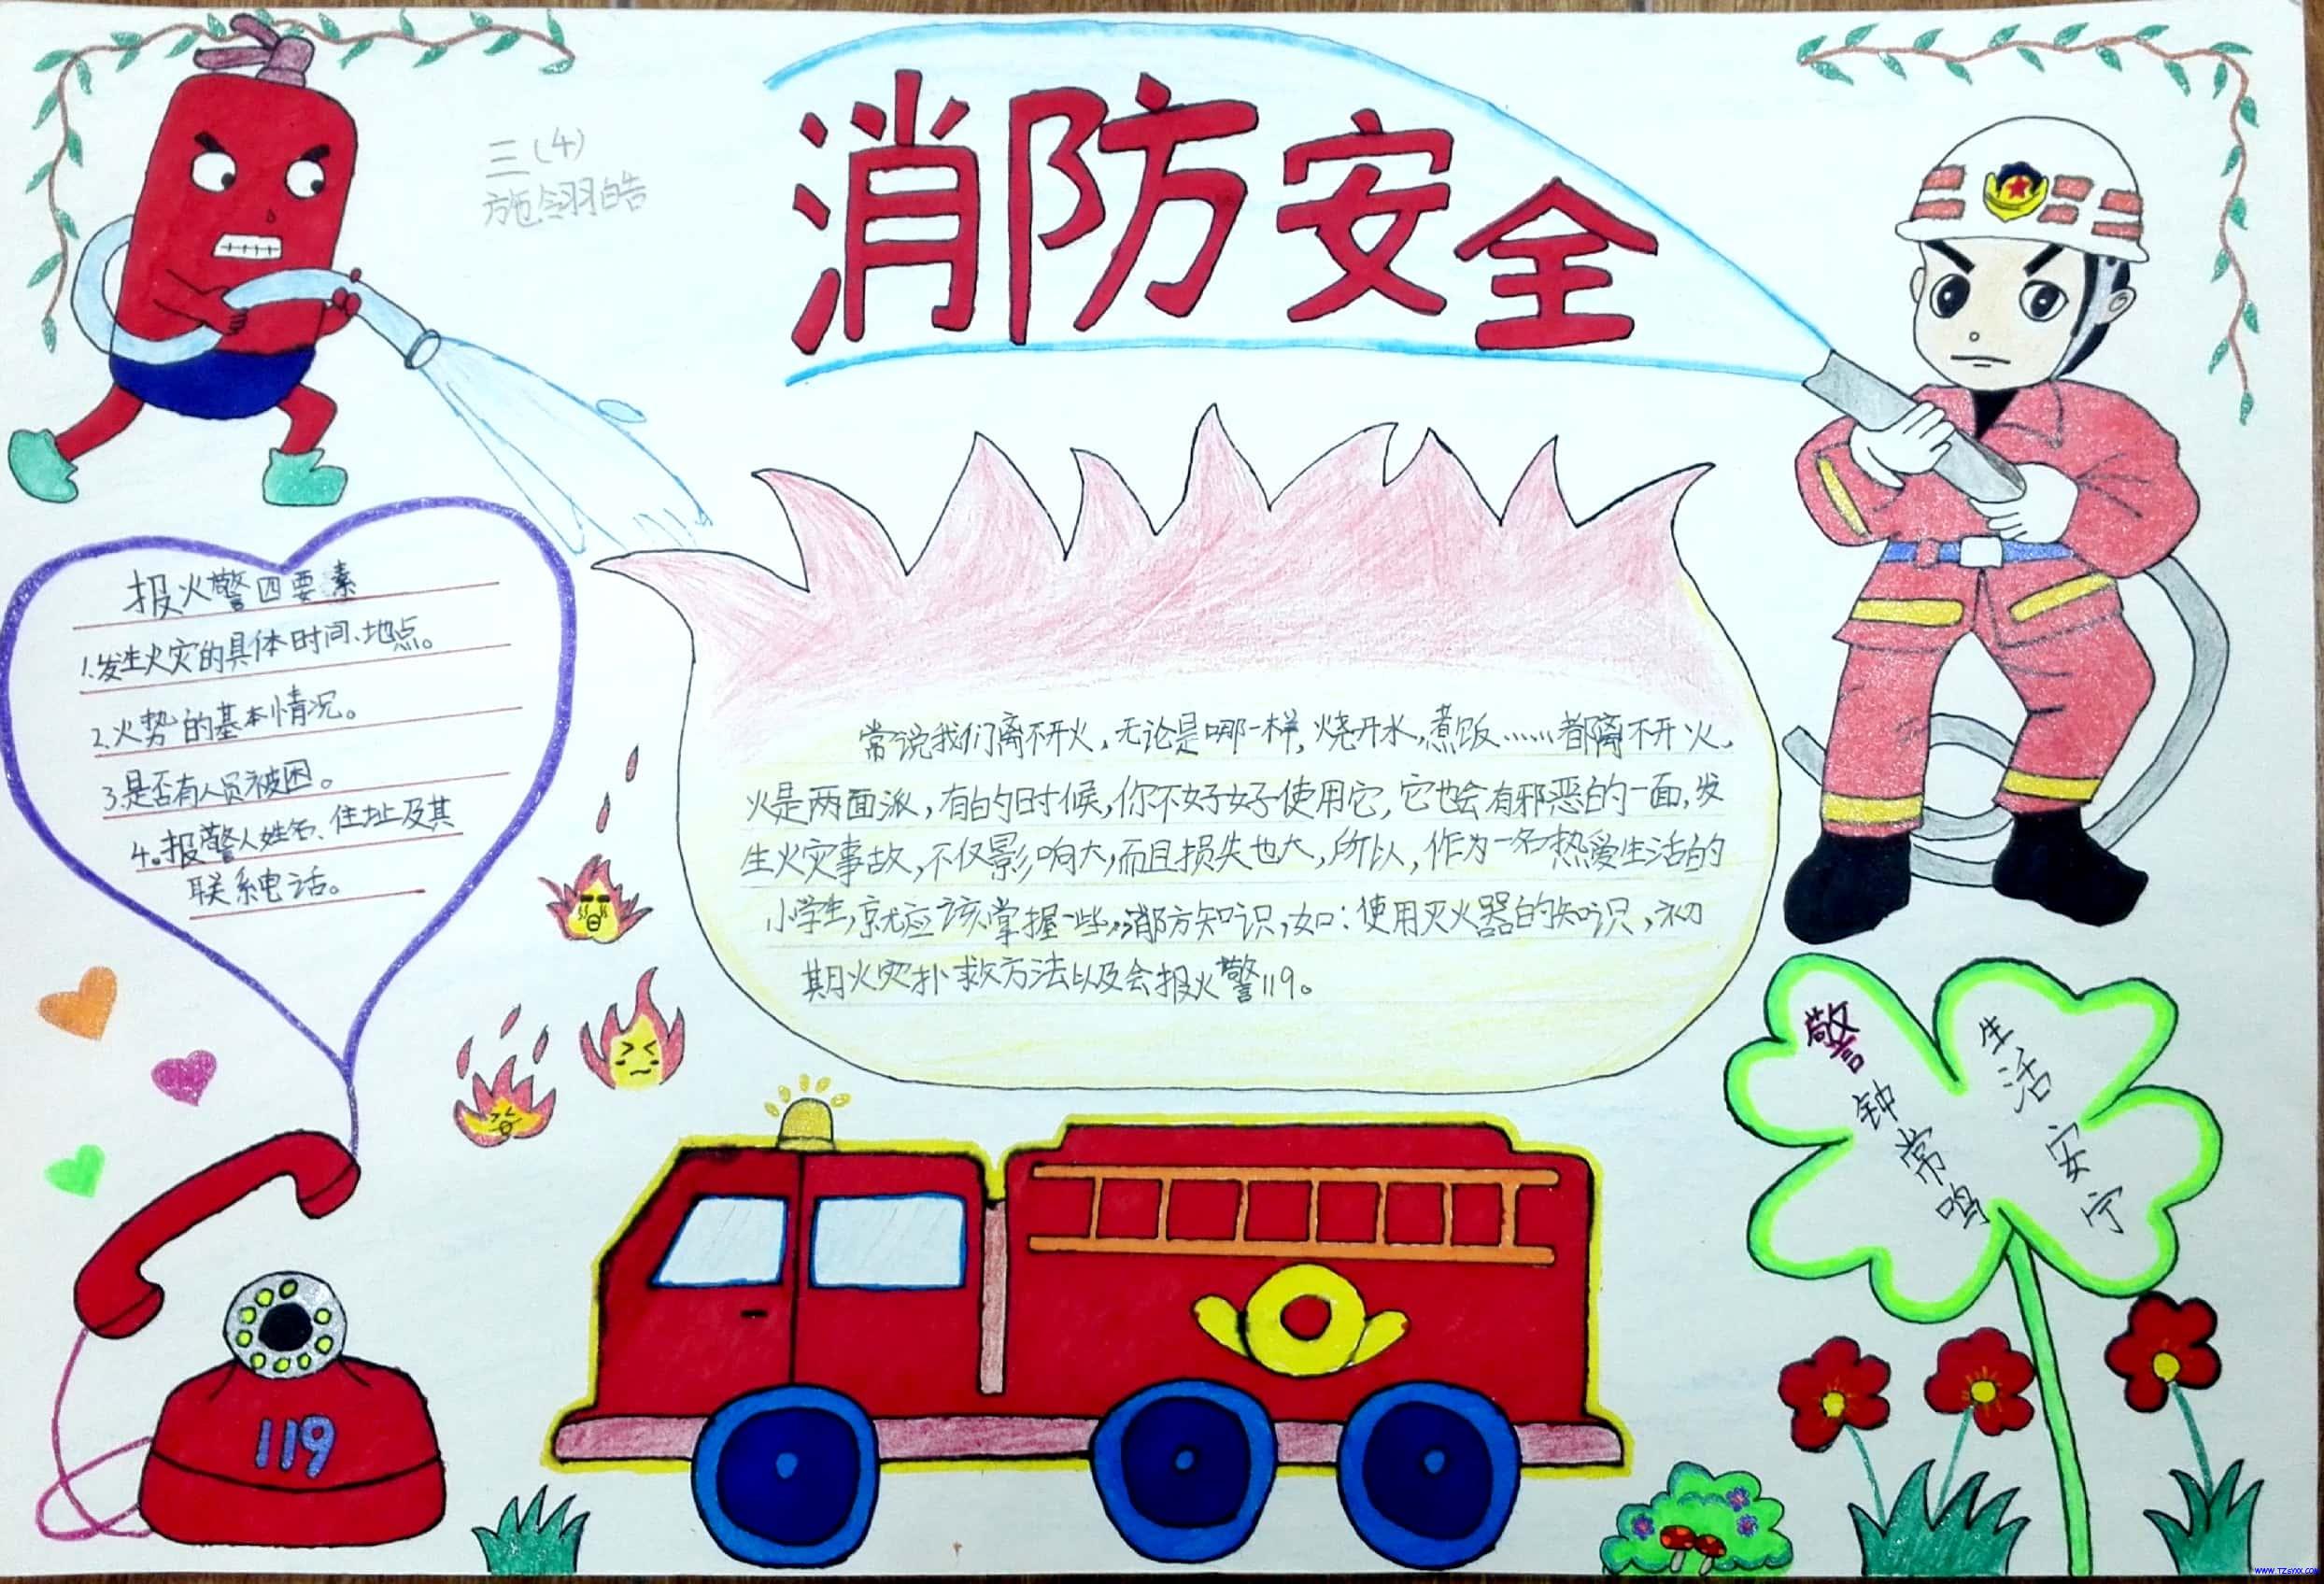 三(4)
施翎皓
消防安全
报火警四要素
1.发生火灾的具体时间、地点。
2.火势的基本情况。
3.是否有人员被困。
4.报警人姓名、住址及其
联系电话。
常说我们离不开火,无论是哪一样,烧开水,煮饭……都离不开火.
火是两面派,有的时候,你不好好使用它,它也会有邪恶的一面,发
生火灾事故,不仅影响大,而且损失也大,所以,作为一名热爱生活的
小学生,就应该掌握一些消防知识,如:使用灭火器的知识,初
期火灾扑救方法以及会报火警119。
警钟常鸣
生活安宁
119